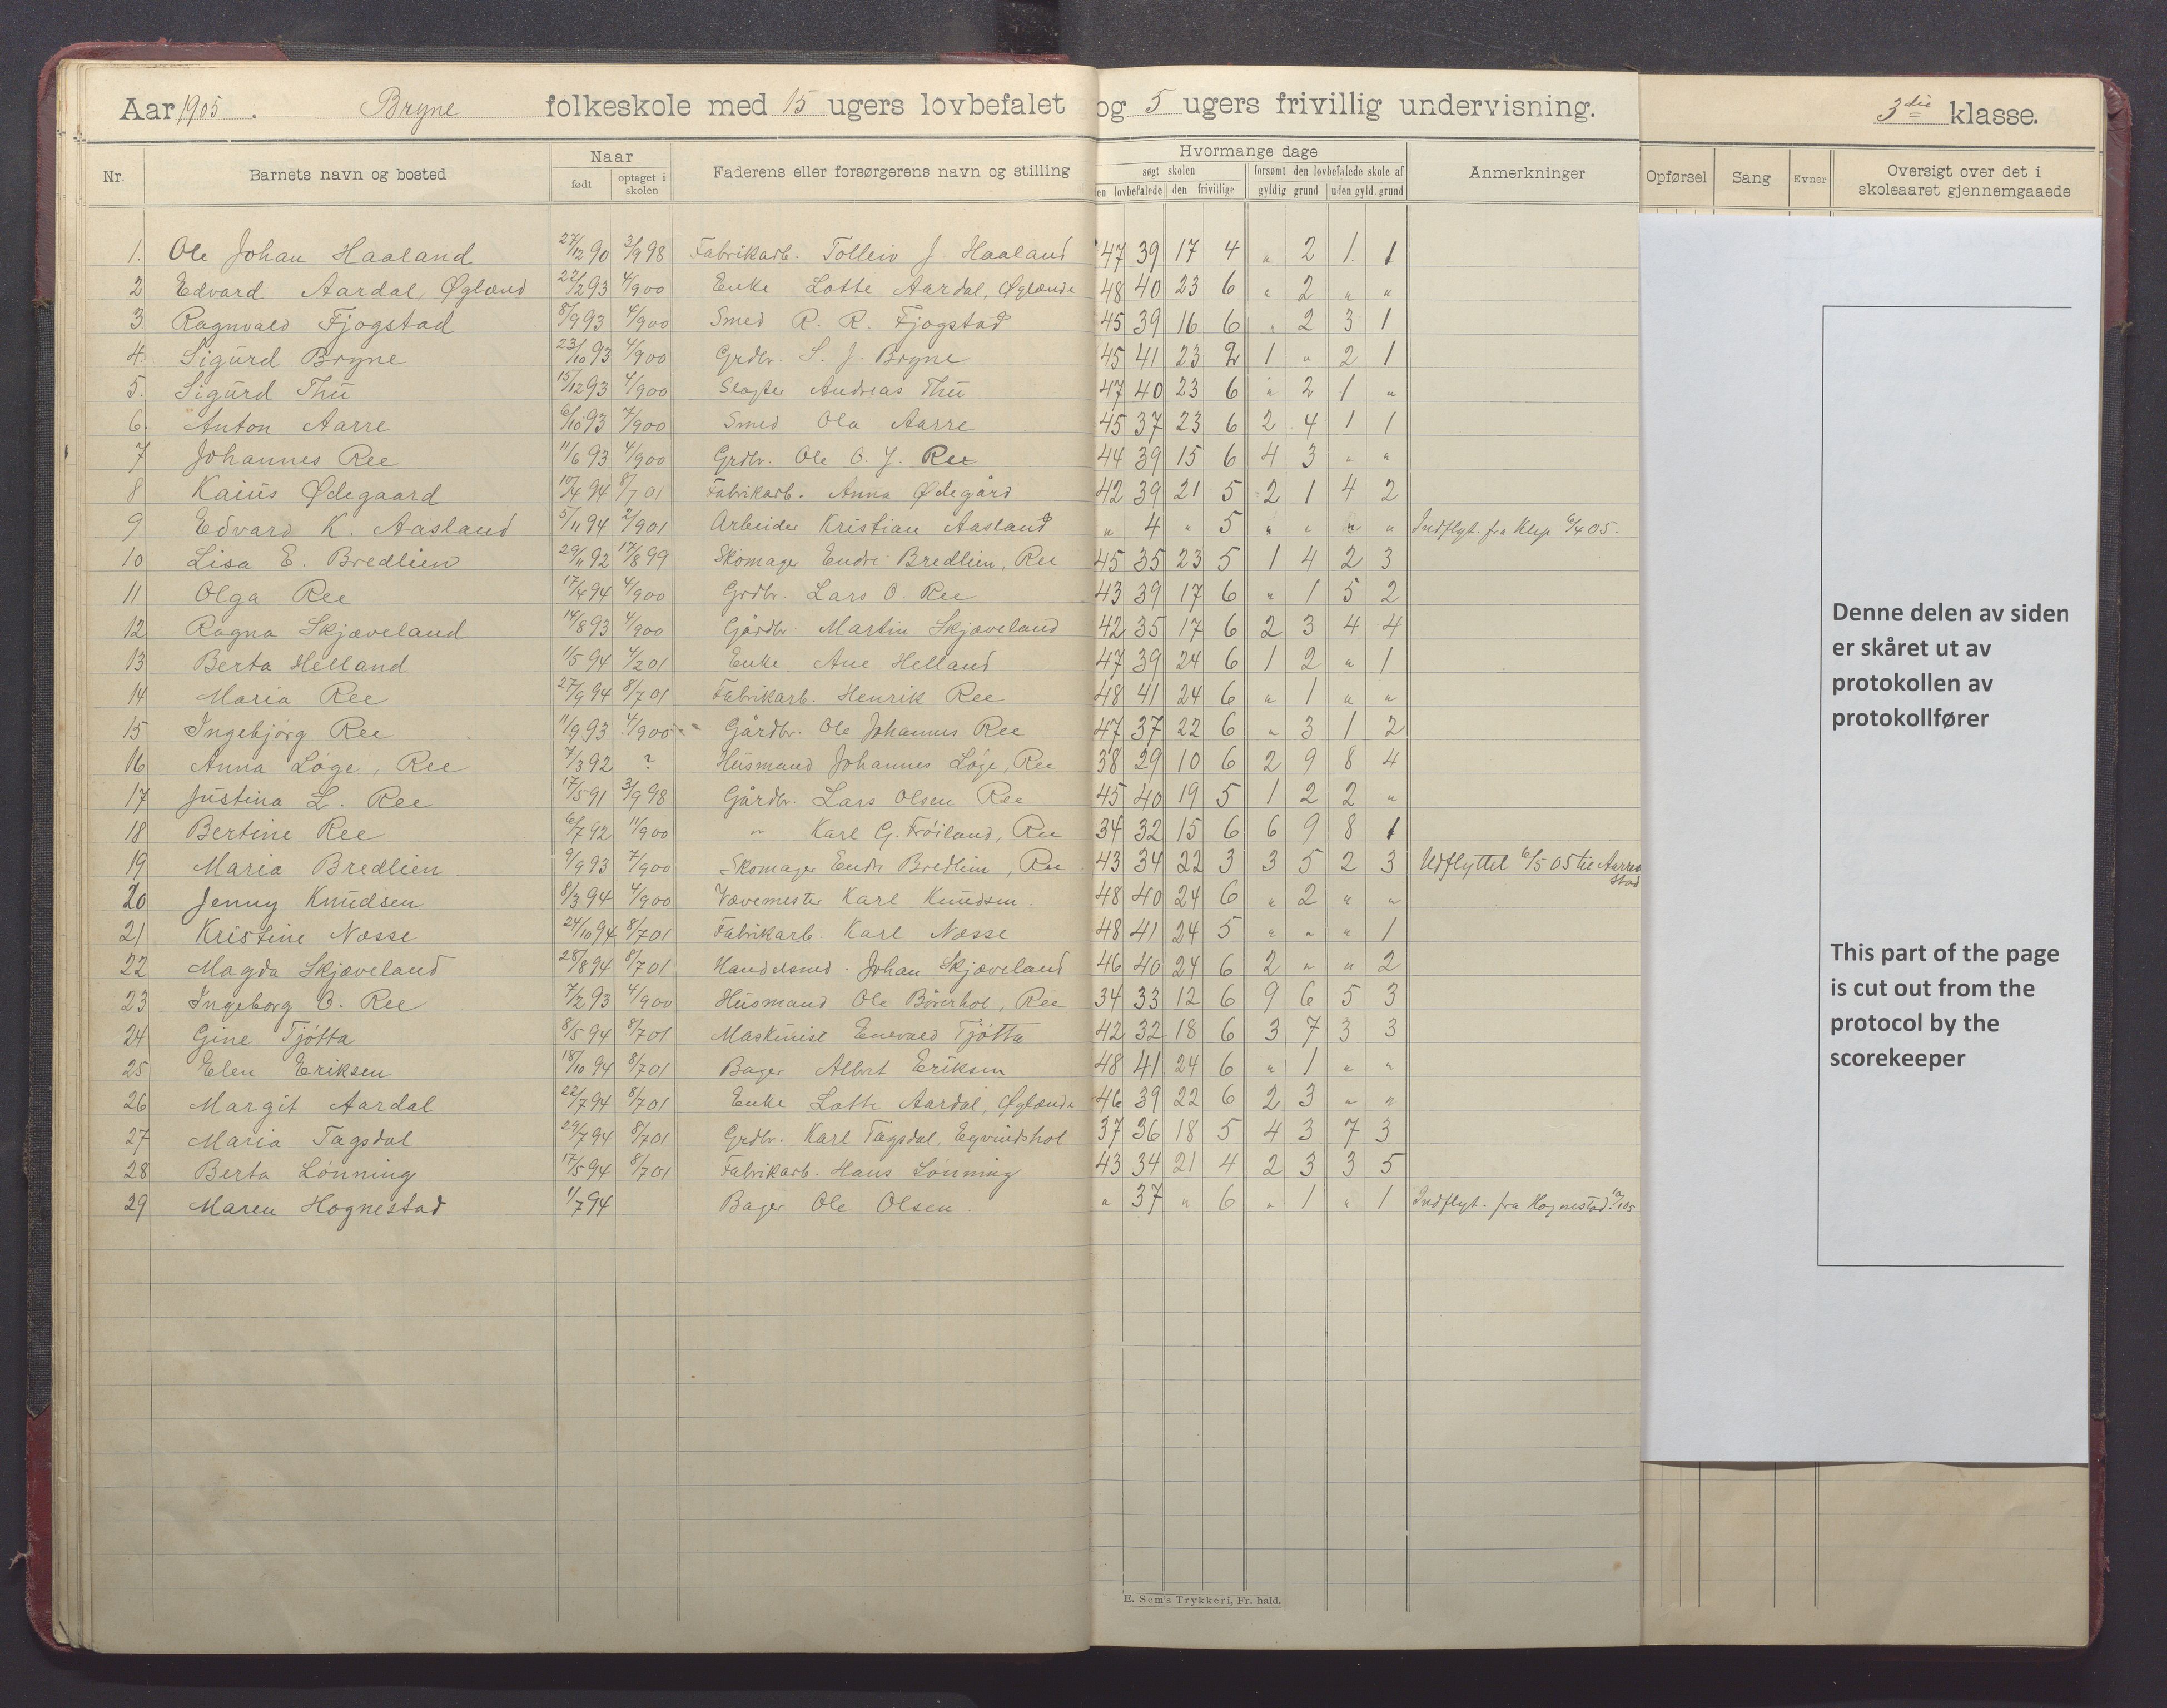 Aar 1905. Bryne folkeskole med 15 ugers lovbefalet og 5 ugers frivillig undervisning. 3die klasse.
Nr. Barnets navn og bosted Naar Faderens eller forsørgerens navn og stilling Hvormange dage Anmerkninger Opførsel Sang Evner Oversigt over det i skoleaaret gjennemgaaede
født optaget i skolen søgt skolen forsømt den lovbefalede skole af
den lovbefalede den frivillige gyldig grund uden gyld grund
1. Ole Johan Haaland 27/12 90 3/9 98 Fabrikarb. Tolleiv J. Haaland 47 39 17 4 " 2 1. 1
2 Edvard Aardal, Øglænd 22/2 93 4/9 00 Enke Lotte Aardal, Øglænd 48 40 23 6 " 2 " "
3 Ragnvald Fjogstad 8/9 93 4/9 00 Smed R. R. Fjogstad 45 39 16 6 " 2 3 1
4. Sigurd Bryne 23/10 93 4/9 00 Grdbr. S. J. Bryne 45 41 23 2 1 " 2 1
5. Sigurd Thu 15/12 93 4/9 00 Slagter Andreas Thu 47 40 23 6 " 2 1 "
6. Anton Aarre 6/10 93 7/9 00 Smed Ola Aarre 45 37 23 6 2 4 1 1
7 Johannes Ree 11/6 93 4/9 00 Grdbr. Ole O. J. Ree 44 39 15 6 4 3 " "
8 Kaius Ødegaard 10/4 94 8/7 01 Fabrikarb. Anna Ødegård 42 39 21 5 2 1 4 2
9 Edvard K. Aasland 5/11 94 2/9 01 Arbeider Kristian Aasland " 4 " 5 " " " " Indflyt. fra Klep 6/4 05.
10 Lisa E. Bredlien 29/11 92 17/8 99 Skomager Endre Bredlien, Ree 45 35 23 5 1 4 2 3
11 Olga Ree 17/4 94 4/9 00 Grdbr. Lars O. Ree 43 39 17 6 " 1 5 2
12 Ragna Skjæveland 14/8 93 4/9 00 Gårdbr. Martin Skjæveland 42 35 17 6 2 3 4 4
13 Berta Helland 1/5 94 4/2 01 Enke Ane Helland 47 39 24 6 1 2 " 1
14 Maria Ree 27/9 94 8/7 01 Fabrikarb. Henrik Ree 48 41 24 6 " 1 " "
15 Ingebjørg Ree 11/9 93 4/9 00 Gårdbr. Ole Johannes Ree 47 37 22 6 " 3 1 2
16 Anna Løge, Ree 7/3 92 ? Husmand Johannes Løge, Ree 38 29 10 6 2 9 8 4
17 Justina L. Ree 17/5 91 3/9 98 Gårdbr. Lars Olsen Ree 45 40 19 5 1 2 2 "
18 Bertine Ree 6/7 92 11/9 00 " Karl G. Frøiland, Ree 34 32 15 6 6 9 8 1
19 Maria Bredlien 9/9 93 7/9 00 Skomager Endre Bredlien, Ree 43 34 22 3 3 5 2 3 Udflyttet 6/5 05 til Aarrestad
20 Jenny Knudsen 8/3 94 4/9 00 Vævemester Karl Knudsen. 48 40 24 6 " 2 " "
21 Kristine Næsse 24/10 94 8/7 01 Fabrikarb. Karl Næsse 48 41 24 5 " " " 1
22 Magda Skjæveland 28/8 94 8/7 01 Handelsmd. Johan Skjæveland 46 40 24 6 2 " " 2
23 Ingeborg O. Ree 7/2 93 4/9 00 Husmand Ole Ree 34 33 12 6 9 6 5 3
24 Gine Tjøtta 8/5 94 8/7 01 Maskinist Enevald Tjøtta 42 32 18 6 3 7 3 3
25 Elen Eriksen 18/10 94 8/7 01 Bager Albert Eriksen 48 41 24 6 " 1 " "
26 Margit Aardal 22/7 94 8/7 01 Enke Lotte Aardal, Øglænd 46 39 22 6 2 3 " "
27 Maria Tagsdal 29/7 94 8/7 01 Grdbr. Karl Tagsdal, Eyvindshol 37 36 18 5 4 3 7 3
28 Berta Lønning 17/5 94 8/7 01 Fabrikarb. Hans Lønning 43 34 21 4 2 3 3 5
29 Maren Hognestad 1/7 94 Bager Ole Olsen. " 37 " 6 " 1 " 1 Indflyt. fra Hognestad
E. Sem's Trykkeri, Fr. hald.
Denne delen av siden
er skåret ut av
protokollen av
protokollfører
This part of the page
is cut out from the
protocol by the
scorekeeper